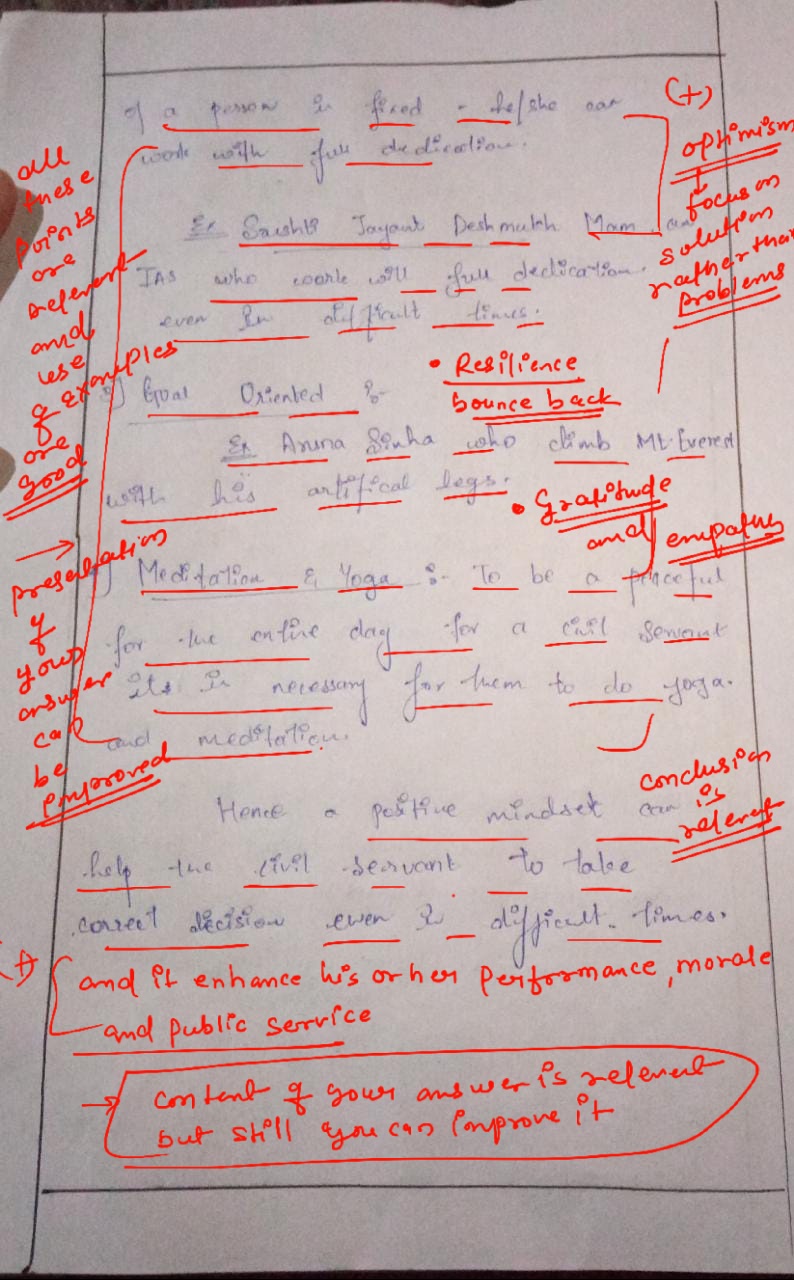 of a person is fixed - he/she can
work with full dedication.
Ex Srishti Jayant Deshmukh Mam, an
IAS who work will full dedication.
even in difficult times.
Goal Oriented :-
Ex Aruna Sinha who climb Mt. Everest
with his artifical legs.
Meditation & Yoga :- To be a peaceful
for the entire day for a civil servant
its is necessary for them to do yoga.
and meditation.
Hence a positive mindset can
help the civil servant to take
correct decision even in difficult times.
all
these
points
are
relevent
and
use
of examples
are
good
→
presentation
of
your
answer
can
be
improved
(+)
optimism
↓
focus on
solution
rather than
problems
• Resilience
bounce back
• Gratitude
and empathy
conclusion
is
relevent
(+)
and it enhance his or her performance, morale
and public service
→ content of your answer is relevent
but still you can improve it